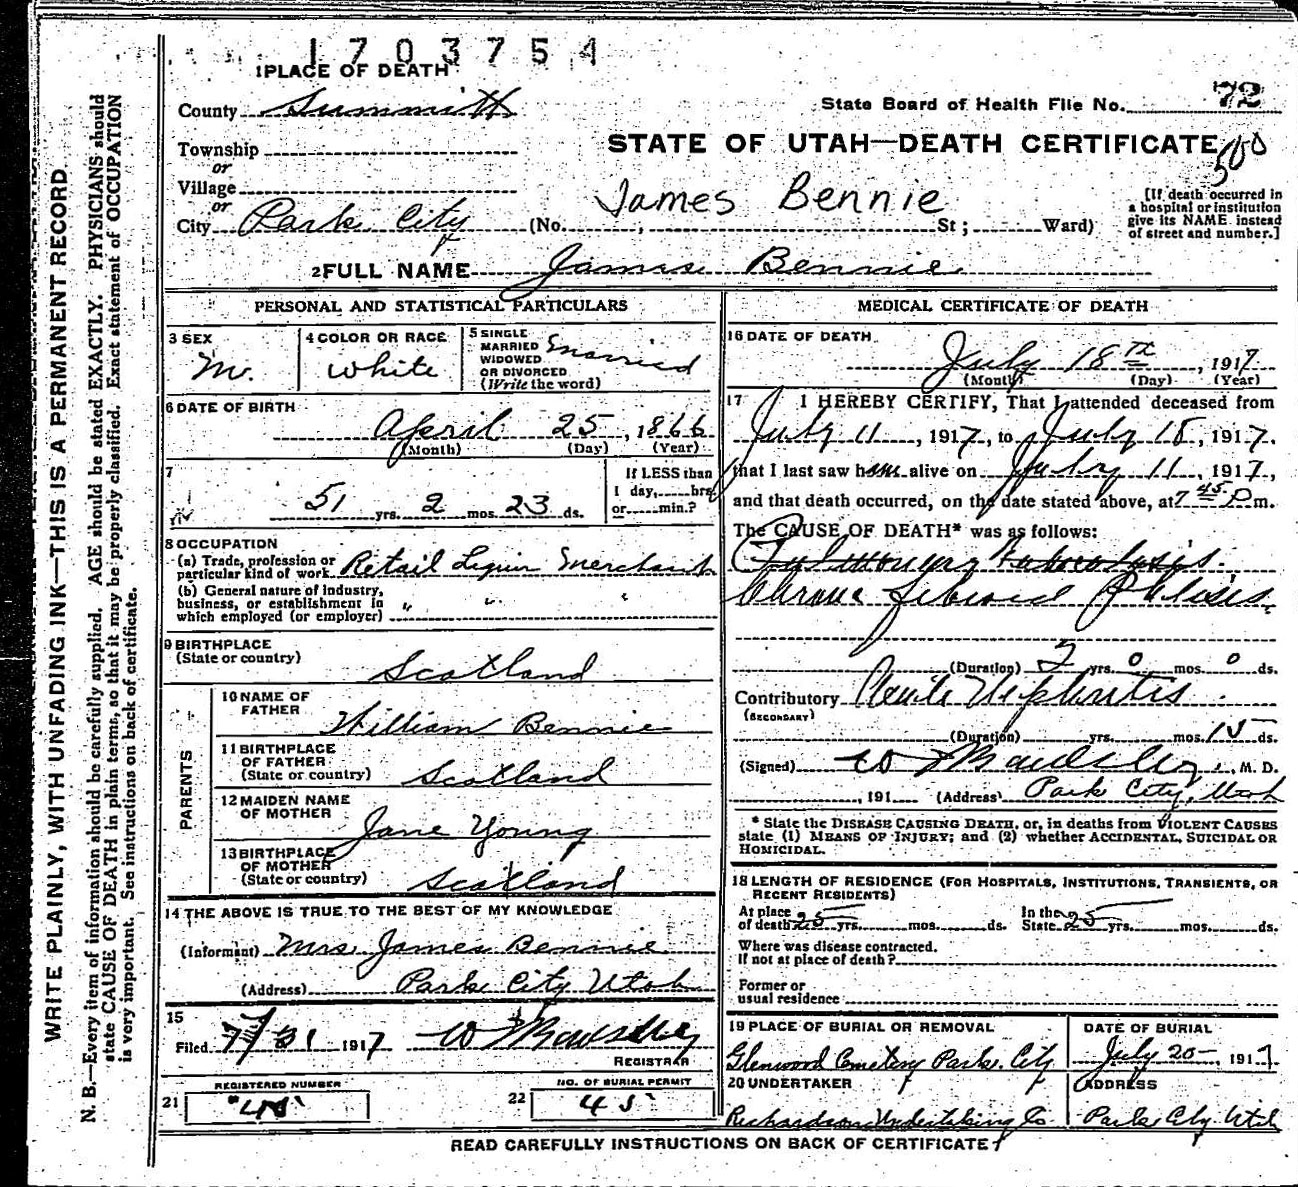 1703754
1 PLACE OF DEATH
County Summitt
State Board of Health File No. 72
Township
or
STATE OF UTAH—DEATH CERTIFICATE
500
Village
or
James Bennie
[If death occurred in
a hospital or institution
give its NAME instead
of street and number.]
City Park City (No. , St; Ward)
2 FULL NAME James Bennie
PERSONAL AND STATISTICAL PARTICULARS
3 SEX
M.
4 COLOR OR RACE
White
5 SINGLE
MARRIED
WIDOWED
OR DIVORCED
(Write the word)
Married
6 DATE OF BIRTH
April 25, 1866
(Month) (Day) (Year)
7
51 yrs. 2 mos. 23 ds.
If LESS than
1 day, hrs
or min.?
8 OCCUPATION
(a) Trade, profession or
particular kind of work Retail Liquor Merchant
(b) General nature of industry,
business, or establishment in
which employed (or employer) " " "
9 BIRTHPLACE
(State or country)
Scotland
PARENTS
10 NAME OF
FATHER
William Bennie
11 BIRTHPLACE
OF FATHER
(State or country) Scotland
12 MAIDEN NAME
OF MOTHER
Jane Young
13 BIRTHPLACE
OF MOTHER
(State or country) Scotland
14 THE ABOVE IS TRUE TO THE BEST OF MY KNOWLEDGE
(Informant) Mrs James Bennie
(Address) Park City Utah
15
Filed 7/31 1917
REGISTRAR
REGISTERED NUMBER
21
NO. OF BURIAL PERMIT
22 45
MEDICAL CERTIFICATE OF DEATH
16 DATE OF DEATH
July 18th, 1917
(Month) (Day) (Year)
17 I HEREBY CERTIFY, That I attended deceased from
July 11, 1917, to July 18, 1917,
that I last saw him alive on July 11, 1917,
and that death occurred, on the date stated above, at 7 45 P m.
The CAUSE OF DEATH* was as follows:
Pulmonary Tuberculosis.
Chronic fibroid Phthisis.
(Duration) 2 yrs. 0 mos. 0 ds.
Contributory Acute Nephritis.
(SECONDARY)
(Duration) yrs. mos. 15 ds.
(Signed) M. D.
, 191 (Address) Park City, Utah
* State the DISEASE CAUSING DEATH, or, in deaths from VIOLENT CAUSES
state (1) MEANS OF INJURY; and (2) whether ACCIDENTAL, SUICIDAL OR
HOMICIDAL.
18 LENGTH OF RESIDENCE (FOR HOSPITALS, INSTITUTIONS, TRANSIENTS, OR
RECENT RESIDENTS)
At place
of death 25 yrs. mos. ds.
In the
State 25 yrs. mos. ds.
Where was disease contracted.
If not at place of death?
Former or
usual residence
19 PLACE OF BURIAL OR REMOVAL
Glenwood Cemetery Park City
DATE OF BURIAL
July 20-, 1917
20 UNDERTAKER
Richardson Undertaking Co
ADDRESS
Park City Utah
READ CAREFULLY INSTRUCTIONS ON BACK OF CERTIFICATE
WRITE PLAINLY, WITH UNFADING INK—THIS IS A PERMANENT RECORD.
N. B.—Every item of information should be carefully supplied. AGE should be stated EXACTLY. PHYSICIANS should
state CAUSE OF DEATH in plain terms, so that it may be properly classified. Exact statement of OCCUPATION
is very important. See instructions on back of certificate.